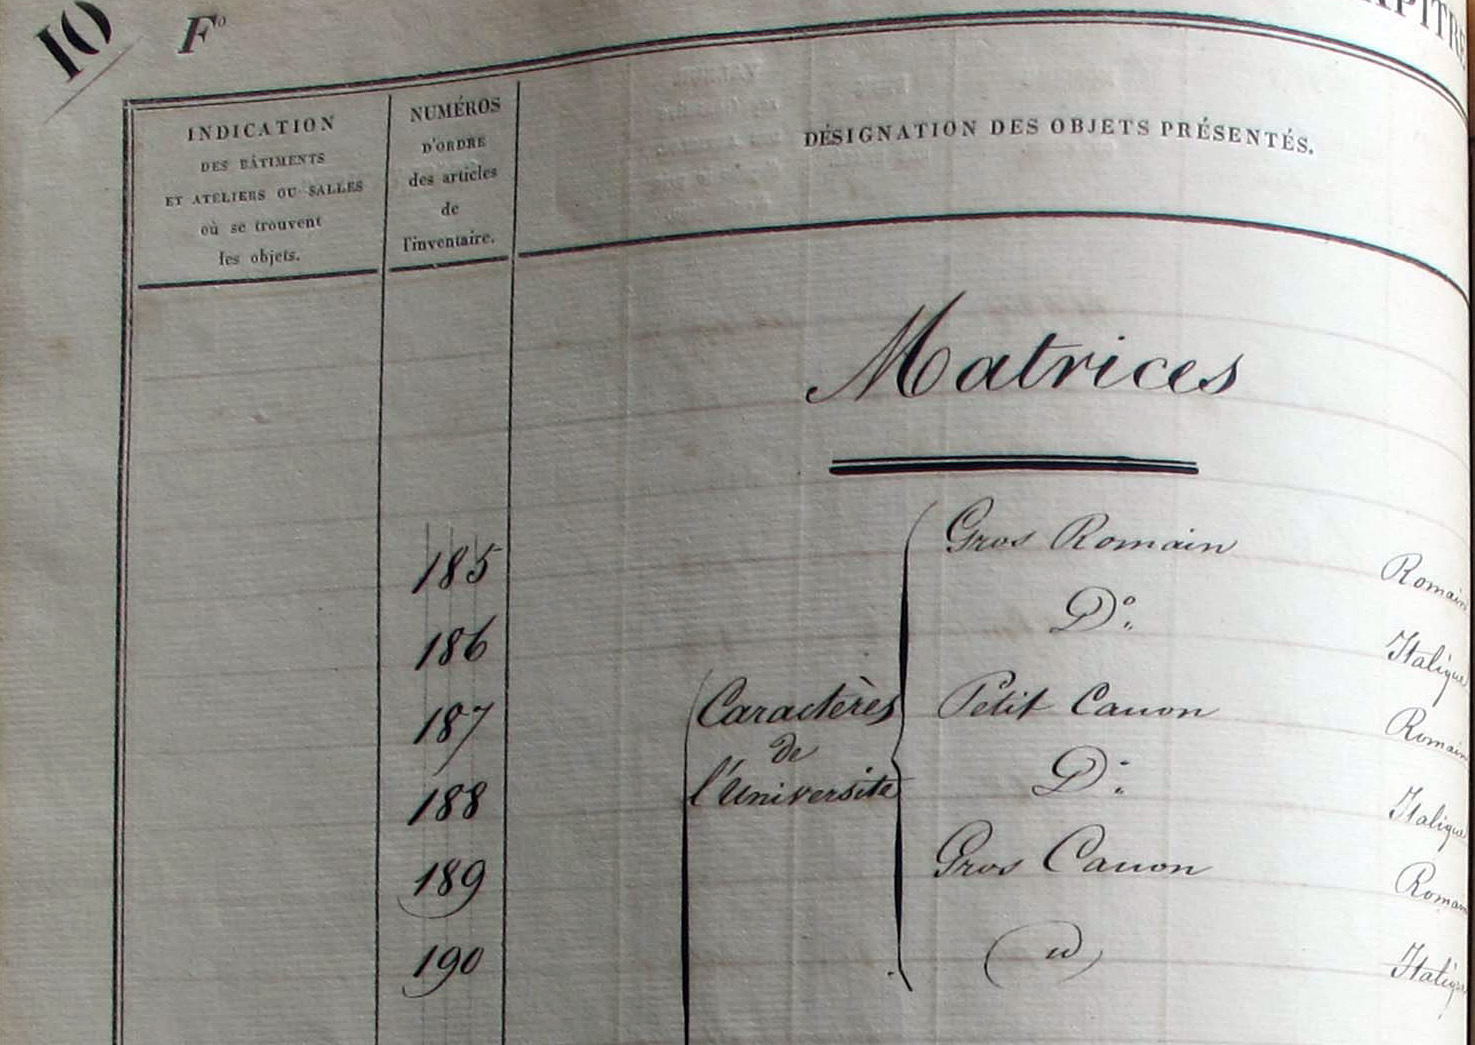 10 Fº
INDICATION
DES BÂTIMENTS
ET ATELIERS OU SALLES
où se trouvent
les objets.
NUMÉROS
D'ORDRE
des articles
de
l'inventaire.
DÉSIGNATION DES OBJETS PRÉSENTÉS.
Matrices
Caractères
de
l'Université
185 Gros Romain Romain
186 Dº. Italique
187 Petit Canon Romain
188 Dº. Italique
189 Gros Canon Romain
190 Italique